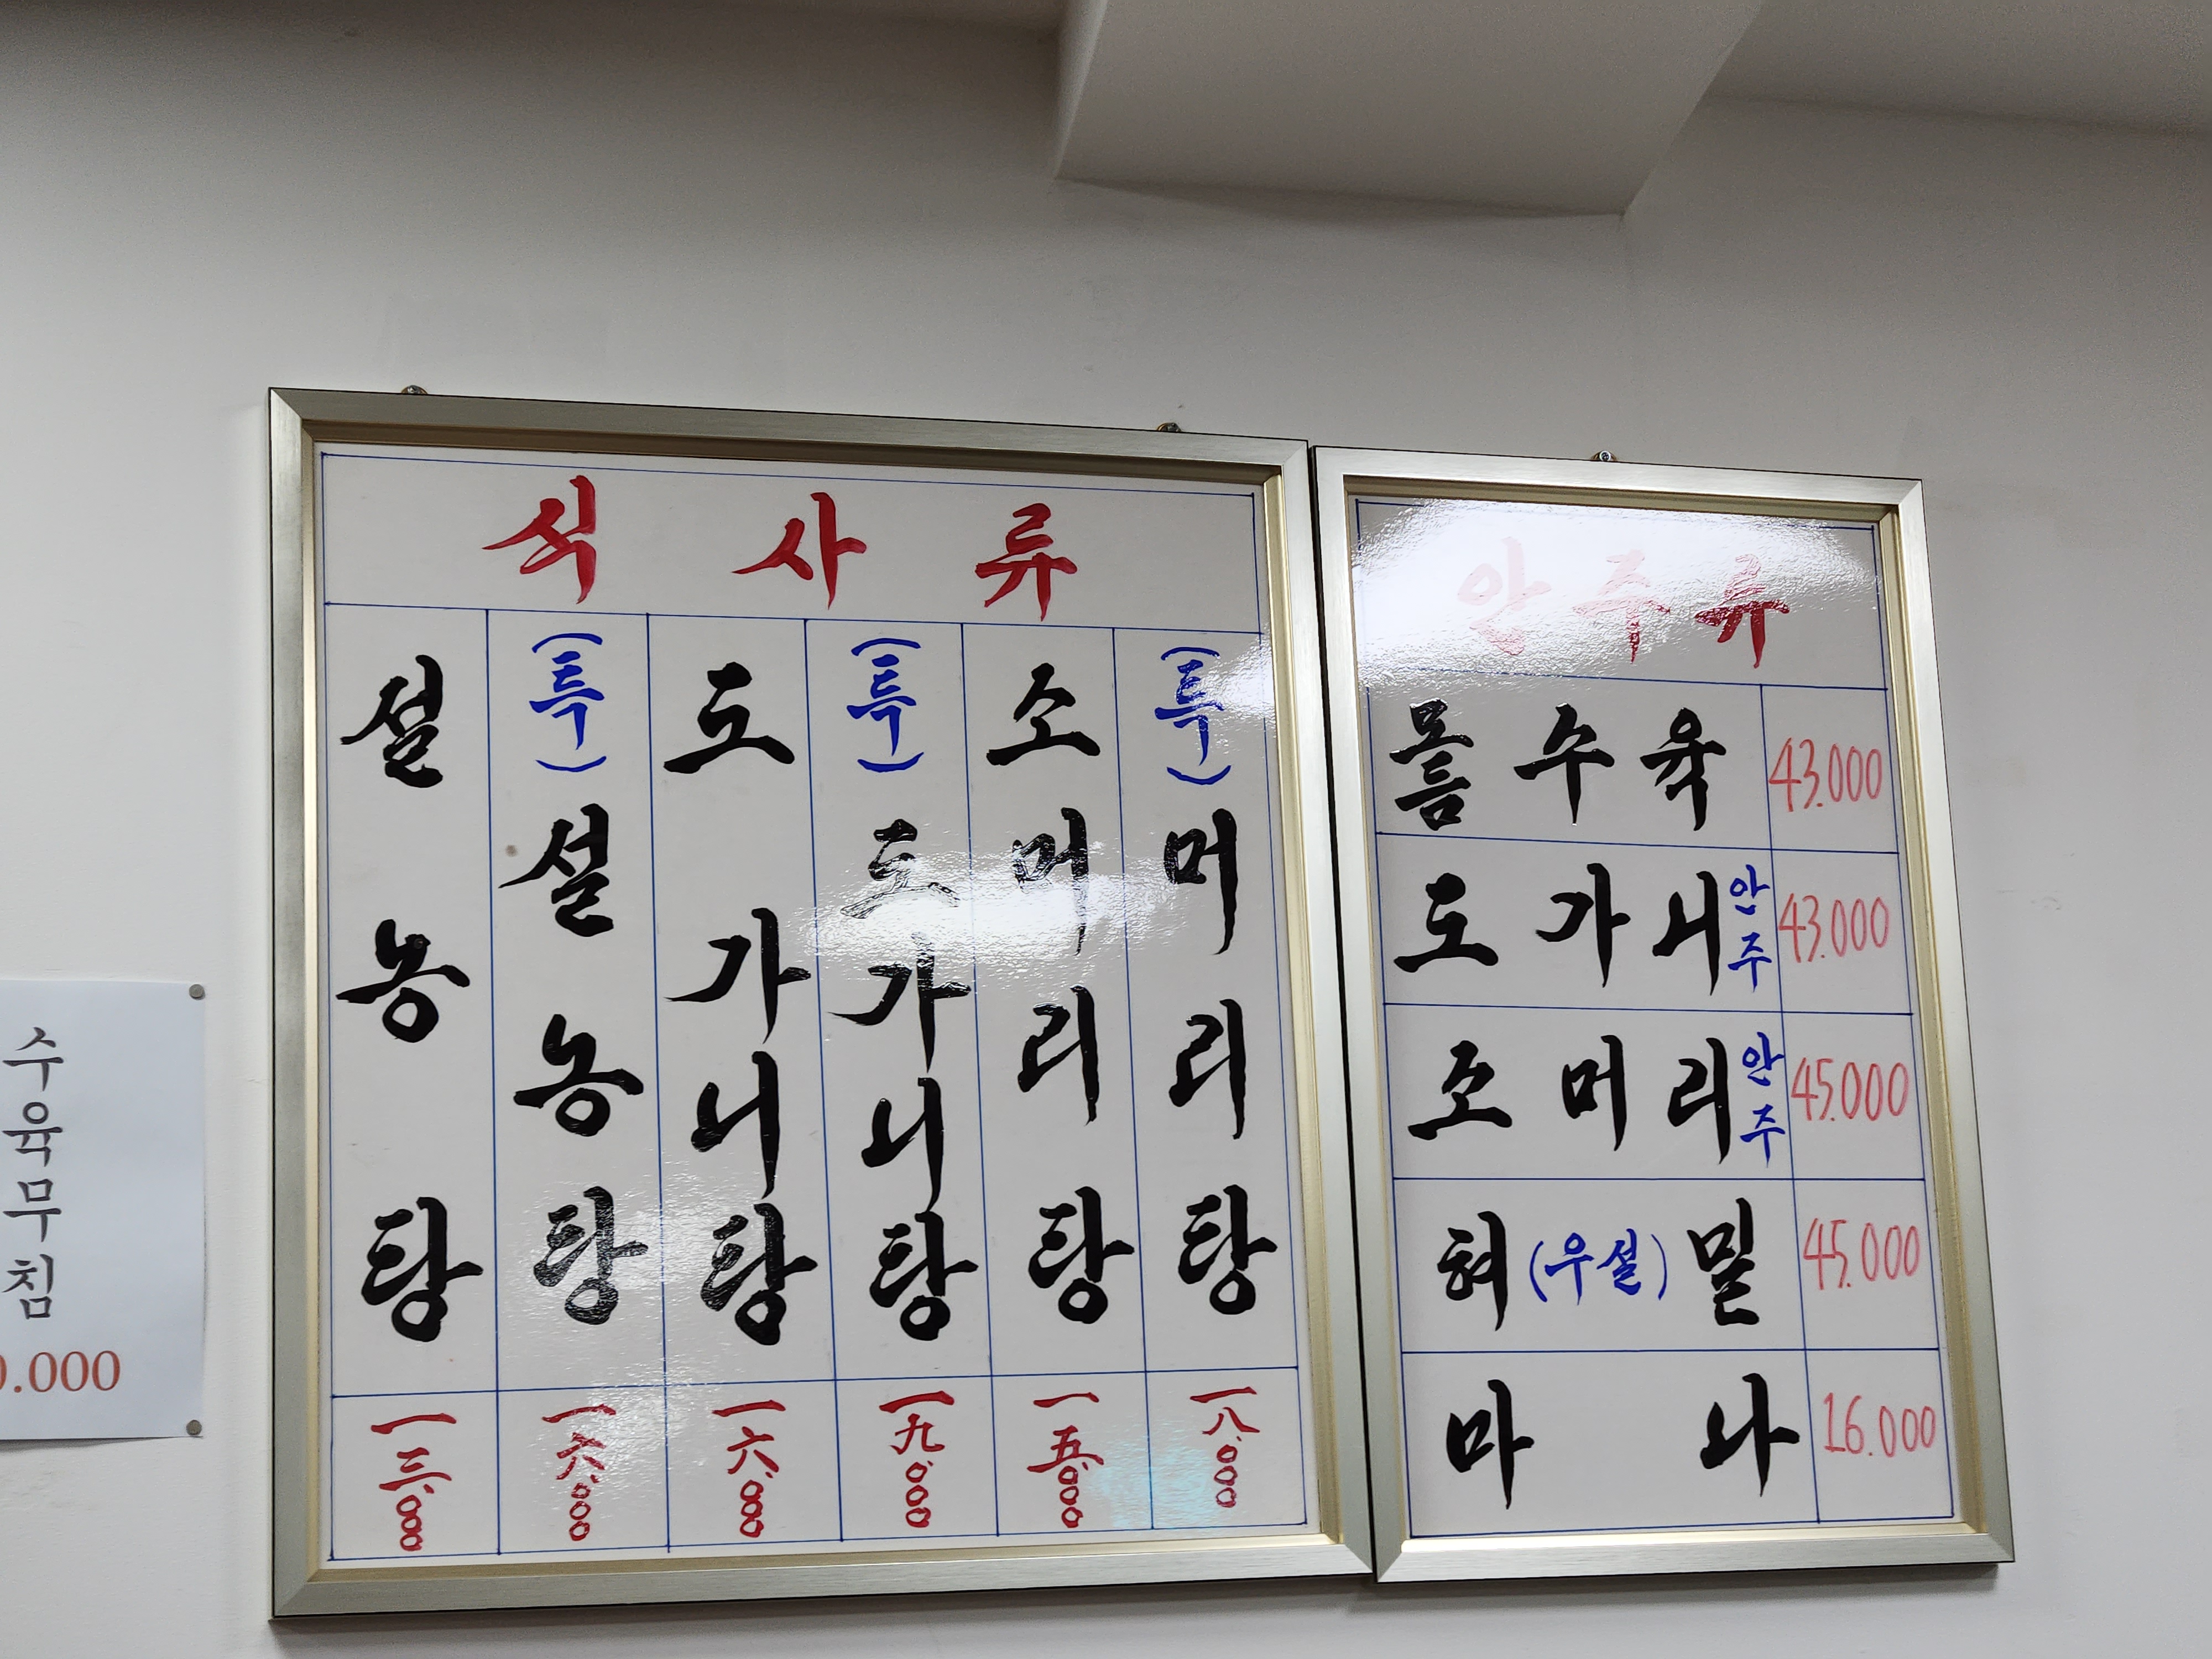 식사류
설농탕
一三,000
(특)설농탕
一六,000
도가니탕
一六,000
(특)도가니탕
一九,000
소머리탕
一五,000
(특)머리탕
一八,000
안주류
모듬수육 43.000
도가니안주 43.000
소머리안주 45.000
혀(우설)밑 45.000
마나 16.000
수육무침
0.000